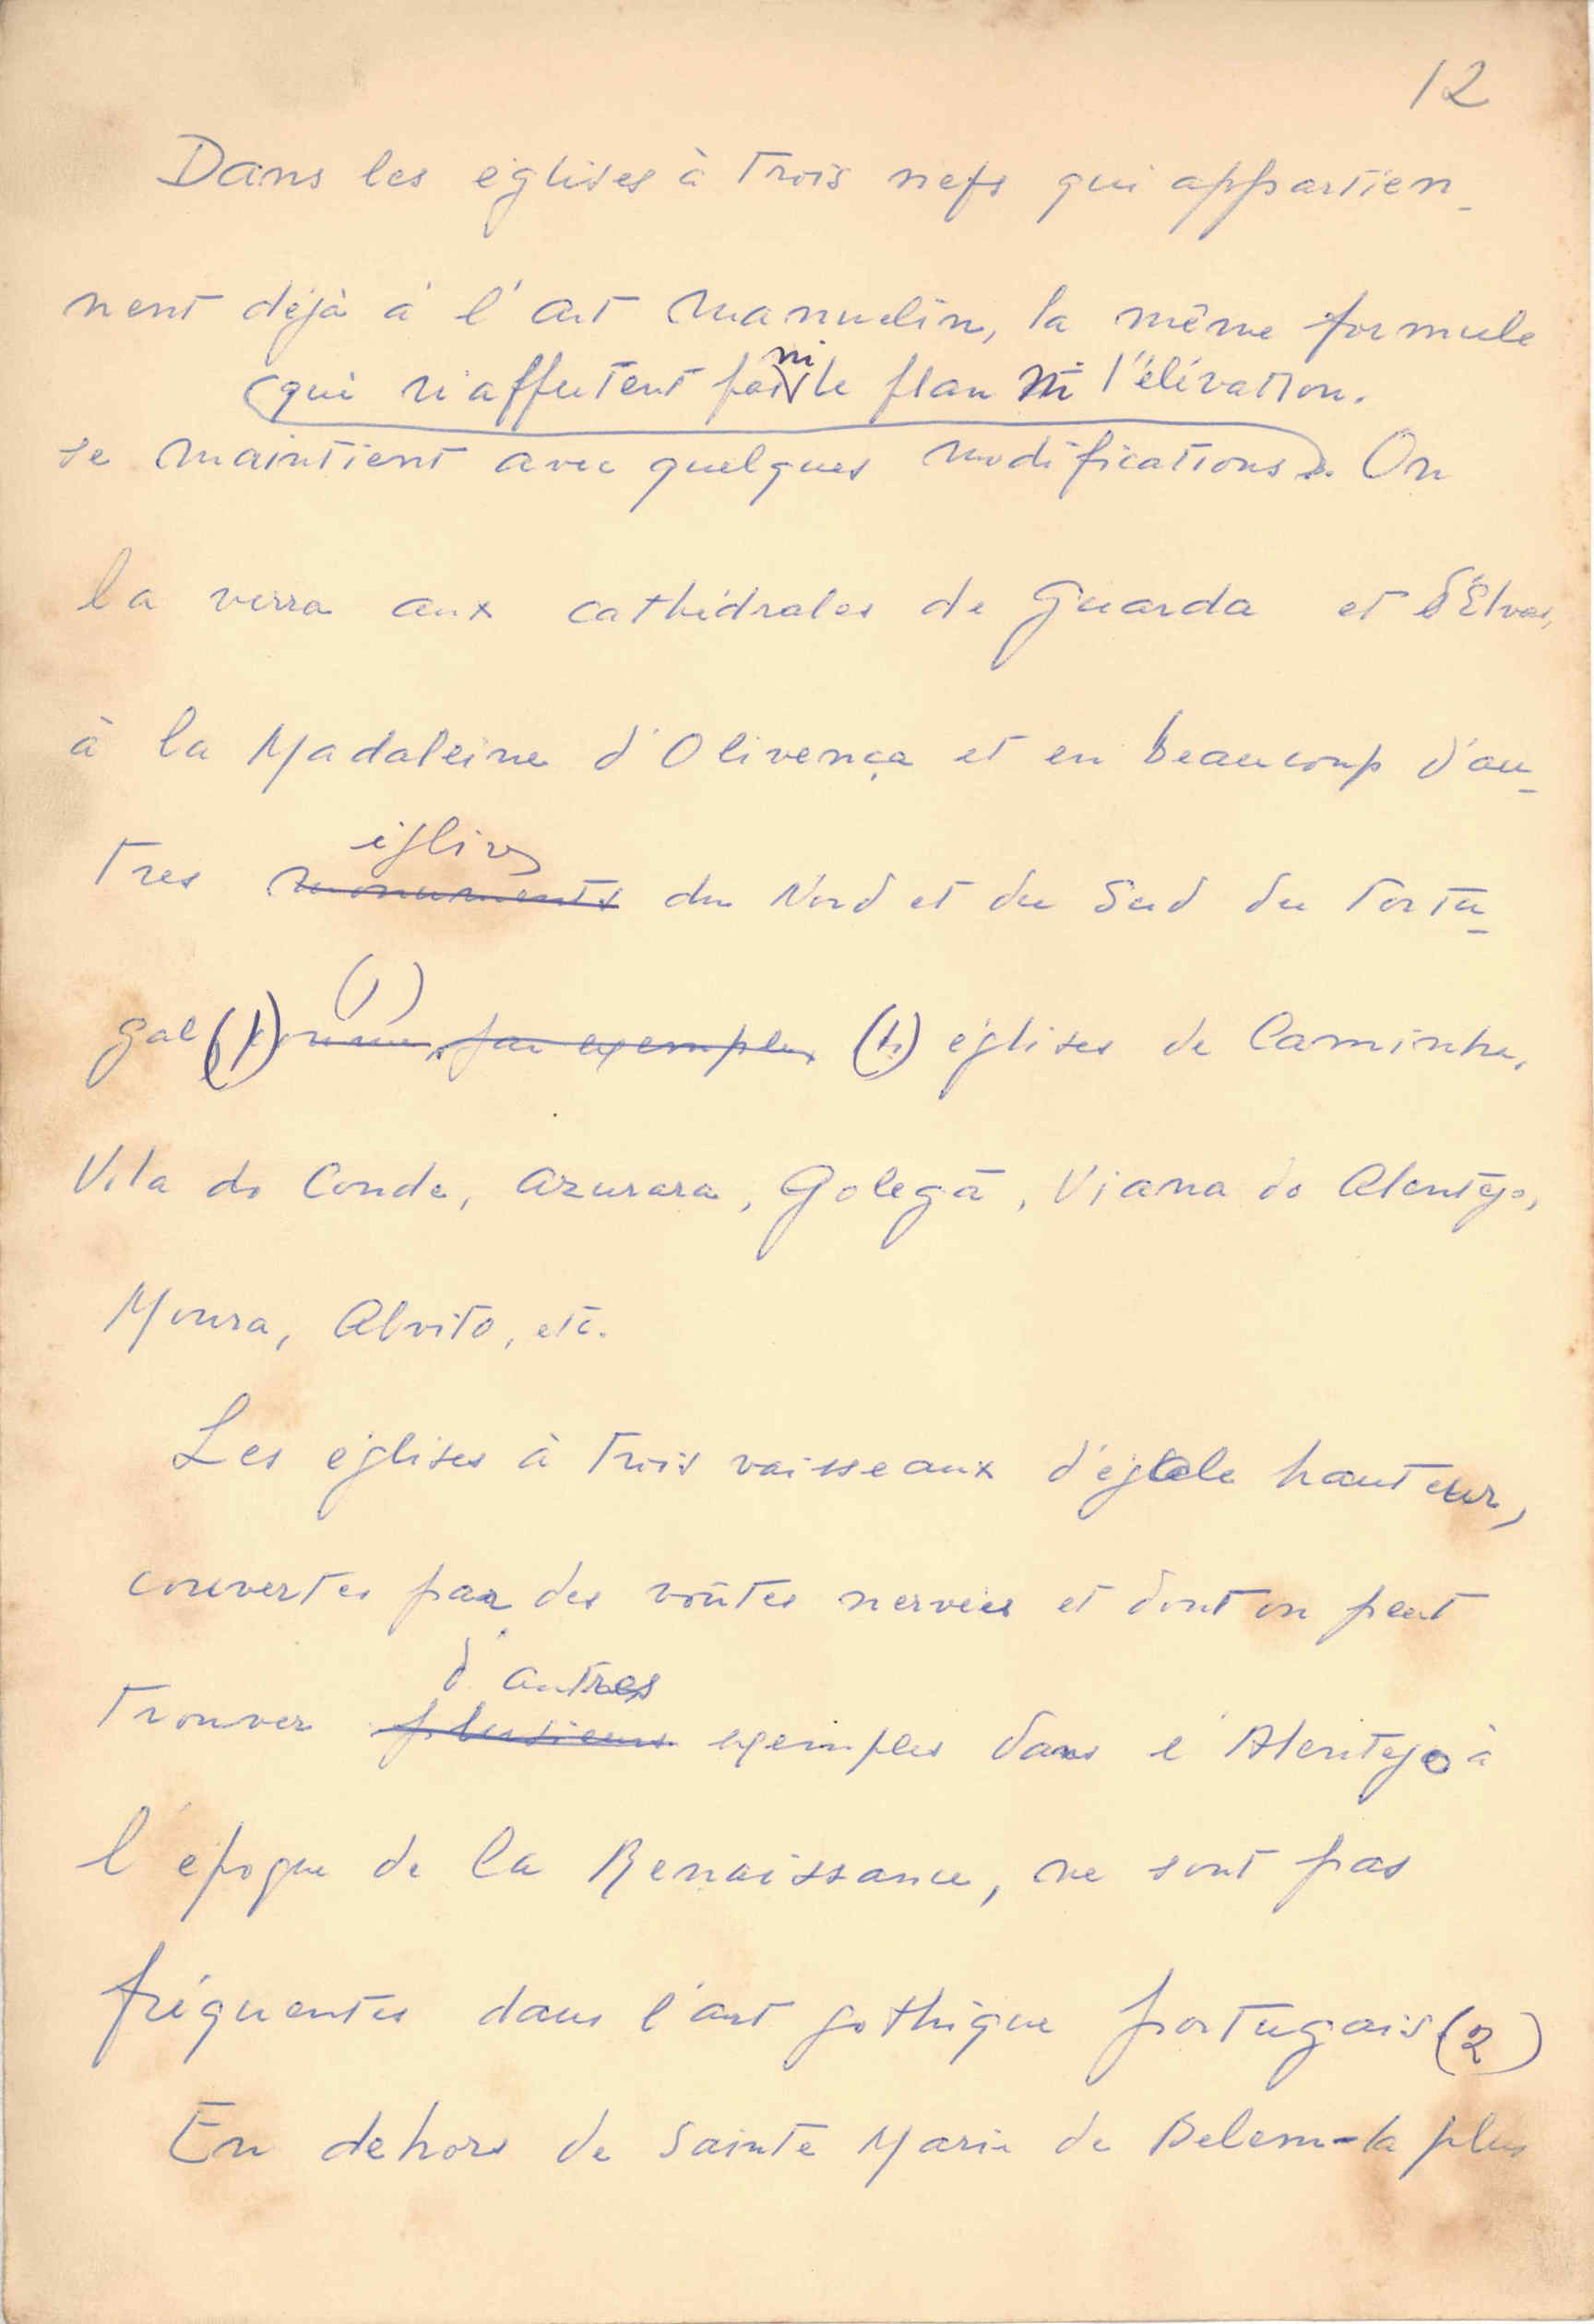 12
Dans les églises à trois nefs qui appartien-
nent déjà à l'art manuelin, la même formule
ni
(qui n'affectent pas le plan ni l'élévation.
se maintient avec quelques modifications). On
la verra aux cathédrales de Guarda et d'Elvas,
à la Madaleine d'Olivença et en beaucoup d'au-
églises
tres monuments du Nord et du Sud du Portu-
(1)
gal (1) comme, par exemple, (1) églises de Caminha,
Vila do Conde, Azurara, Golegã, Viana do Alentejo,
Moura, Alvito, etc.
Les églises à trois vaisseaux d'égale hauteur,
couvertes par des voûtes nervées et dont on peut
d'autres
trouver plusieurs exemples dans l'Alentejo à
l'époque de la Renaissance, ne sont pas
fréquentes dans l'art gothique portugais (2)
En dehors de Sainte Marie de Belem - la plus